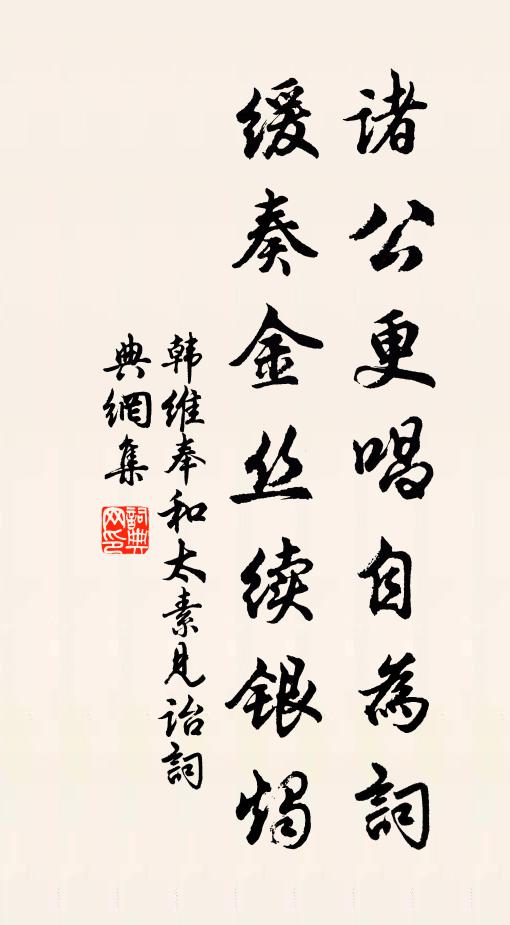 诸公更唱自為詞
缓奏金丝续银燭
韩维奉和太素見诒詞
典網集
詞典网印